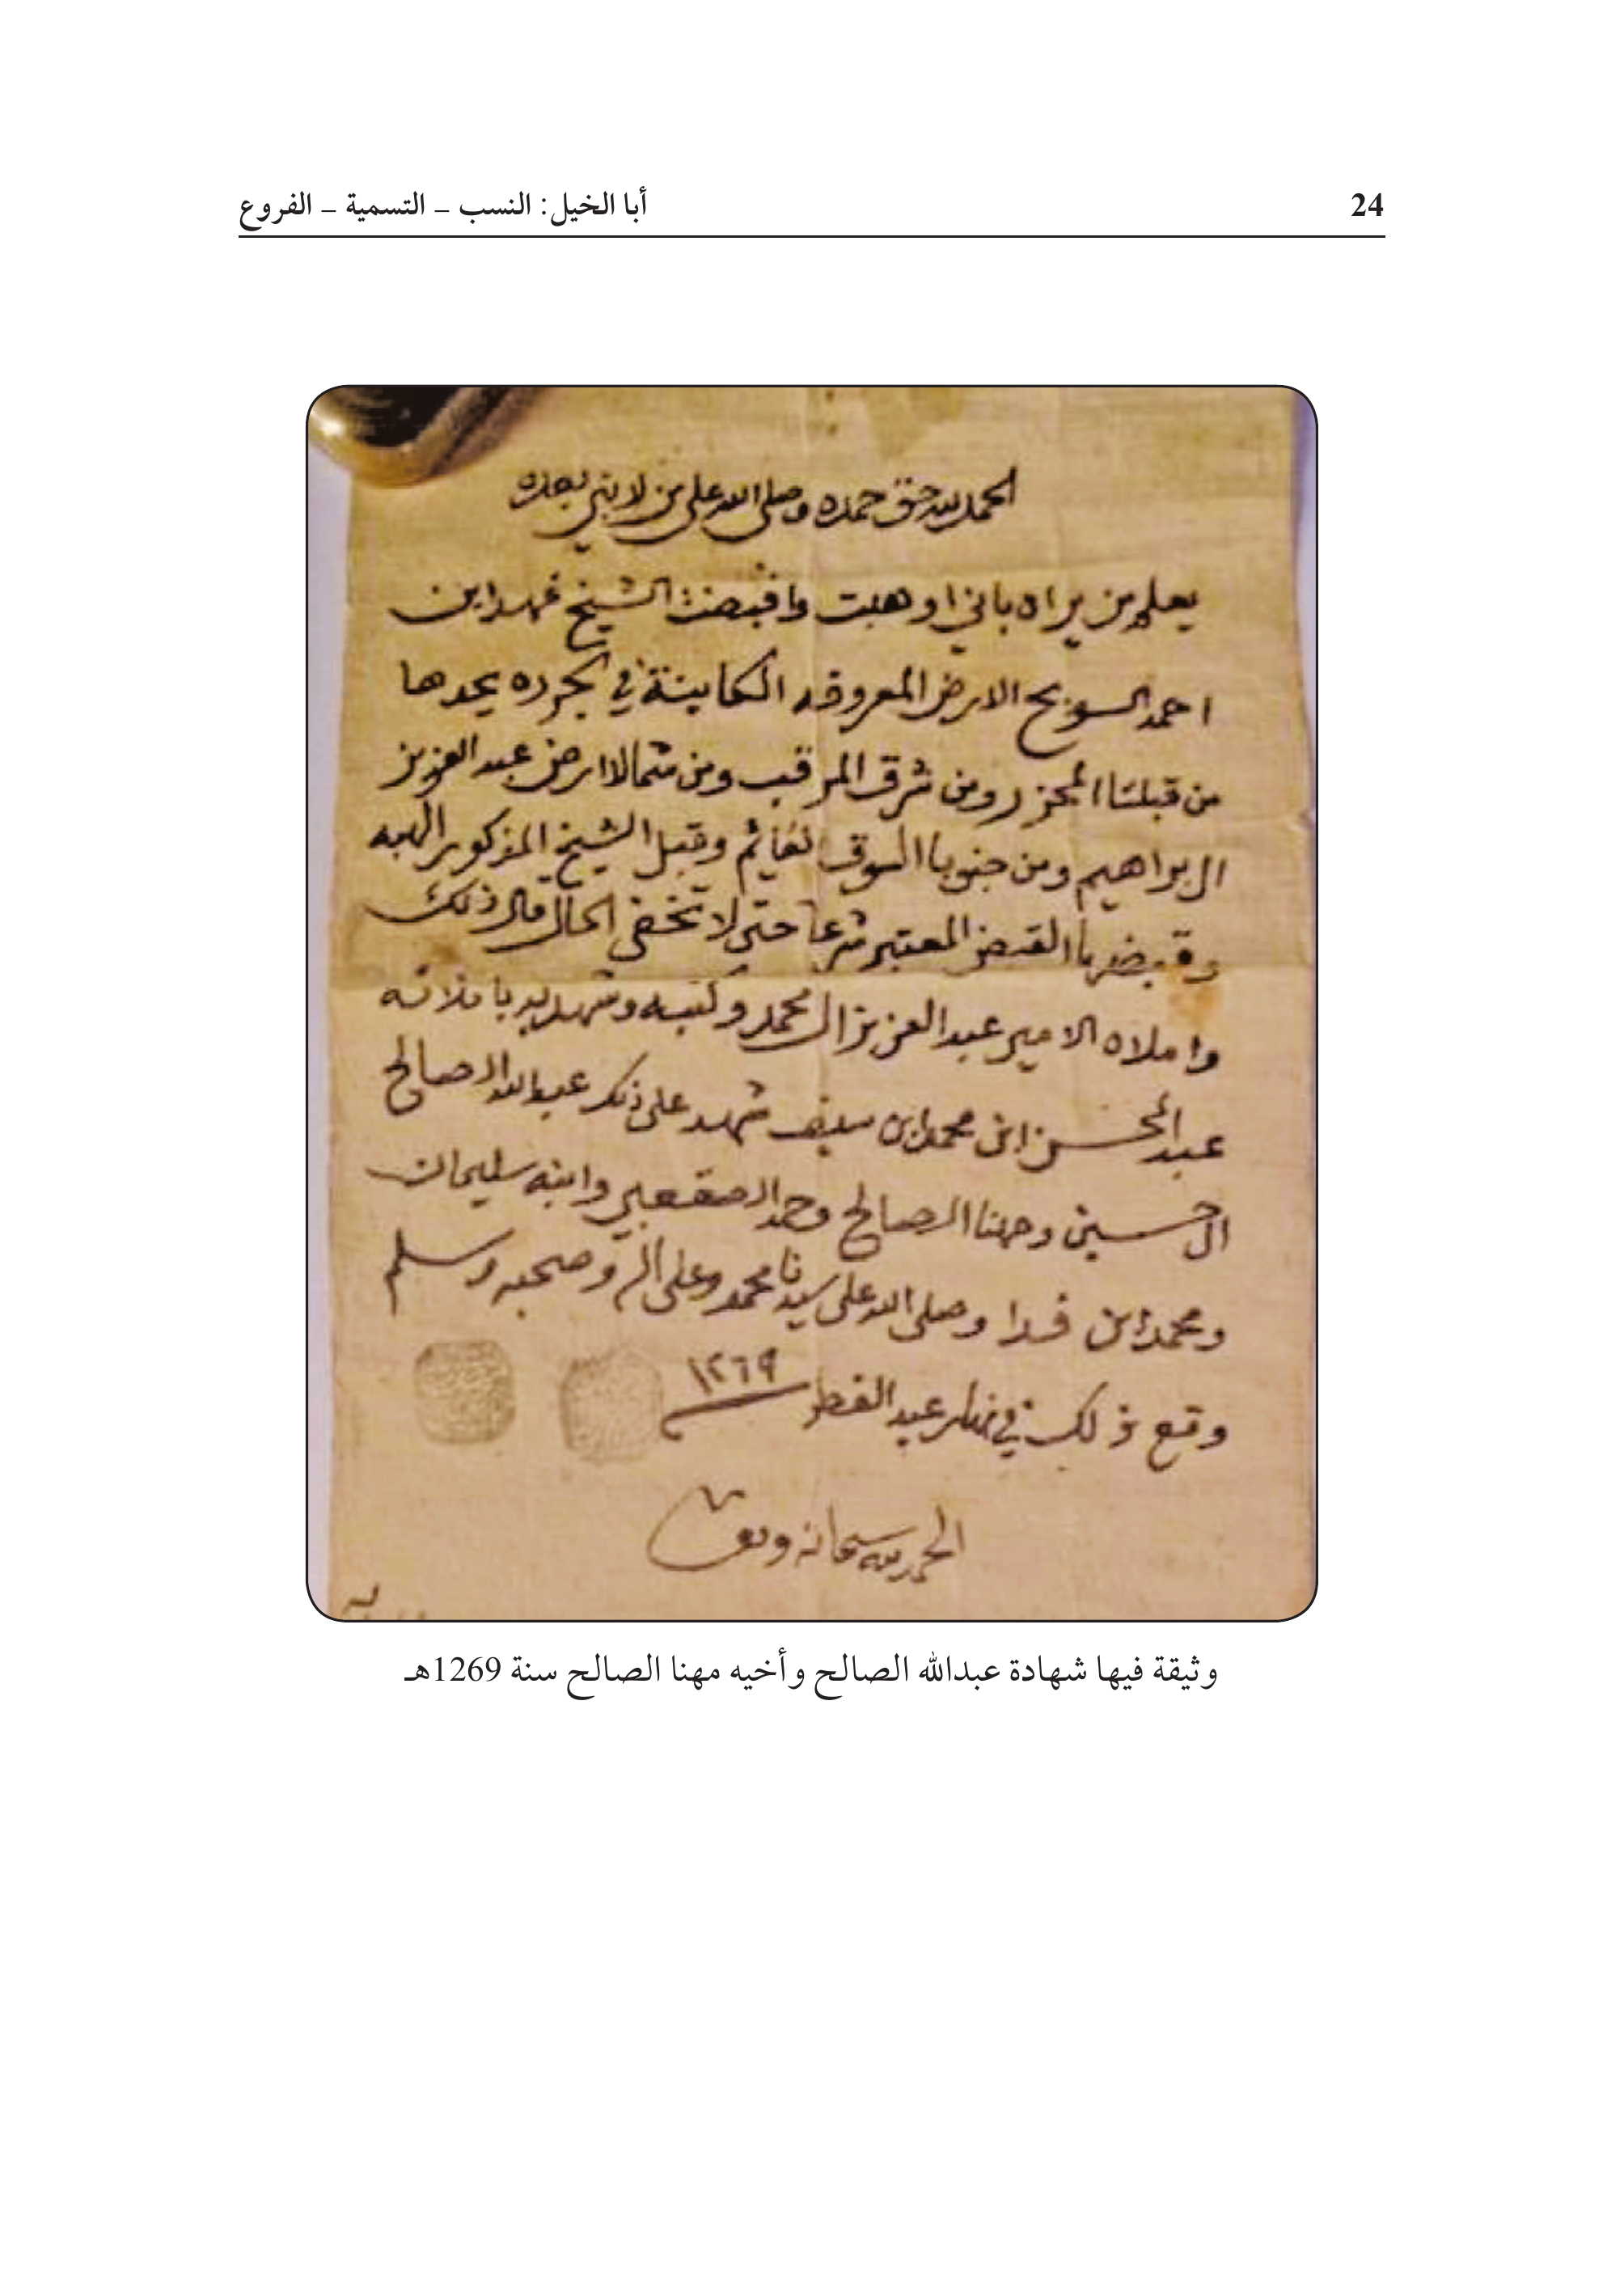 24
أبا الخيل: النسب – التسمية – الفروع
الحمد لله حق حمده وصلى الله على من لا نبي بعده
يعلم من يراه باني اوهبت واقبضت الشيخ فهد ابن
احمد السويح الارض المعروفه الكاينة في الجرده يحدها
من قبلتا المجزر ومن شرق المرقب ومن شمالا ارض عبد العزيز
ال براهيم ومن جنوبا السوق القائم وقبل الشيخ المذكور الهبه
وقبضها القبض المعتبر شرعا حتى لا تخفى الحال قال ذلك
واملاه الامير عبد العزيز ال محمد وكتبه وشهد به باملائه
عبد المحسن ابن محمد ابن سيف شهد على ذلك عبد الله الصالح
ال حسين ومهنا الصالح وحمد الصقعبي وابنه سليمان
ومحمد ابن فدا وصلى الله على سيدنا محمد وعلى اله وصحبه وسلم
وقع ذلك في نهار عيد الفطر ١٢٦٩
الحمد لله سبحانه
وثيقة فيها شهادة عبدالله الصالح وأخيه مهنا الصالح سنة 1269هـ